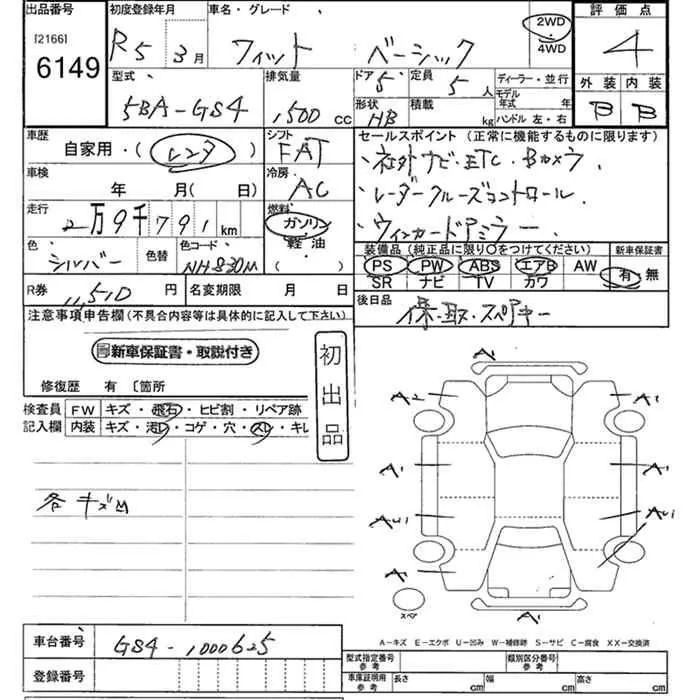 出品番号 初度登録年月 車名・グレード 2WD 評価点
[2166] R5 3月 フィット ベーシック 4WD 4
6149 型式 排気量 ドア 5 定員 5人 ディーラー・並行 外装 内装
5BA-GS4 1,500 CC 形状 HB 積載 kg モデル年式 年 ハンドル 左・右 B B
車歴 自家用・(レンタ) シフト FAT セールスポイント(正常に機能するものに限ります)
車検 年 月(日) 冷房 AC ・社外ナビ・ETC・Bカメラ.
走行 2万9千791km 燃料 ガソリン 軽油・( ) ・レーダークルーズコントロール
・ウィンカードアミラー
色 シルバー 色替 色コード NH-830M 装備品(純正品に限り○をつけてください) 新車保証書
PS PW ABS エアB AW 有・無
SR ナビ TV カワ
R券 11,510円 名変期限 月 日 後日品 保・取・スペアキー
注意事項申告欄(不具合内容等は具体的に記入して下さい)
新車保証書・取説付き
初出品
修復歴 有 〔箇所
検査員 FW キズ・飛石・ヒビ割・リペア跡
記入欄 内装 キズ・汚レ・コゲ・穴・スレ・キレ
A1
A2 A1
A1 A1
各キズM
AU1 AU1
A1
スペア A1
A-キズ E-エクボ U-凹み W-補修跡 S-サビ C-腐食 XX-交換済
車台番号 GS4-1000625
型式指定番号 参考 類別区分番号 参考
登録番号 車庫証明用 参考 長さ cm 幅 cm 高さ cm